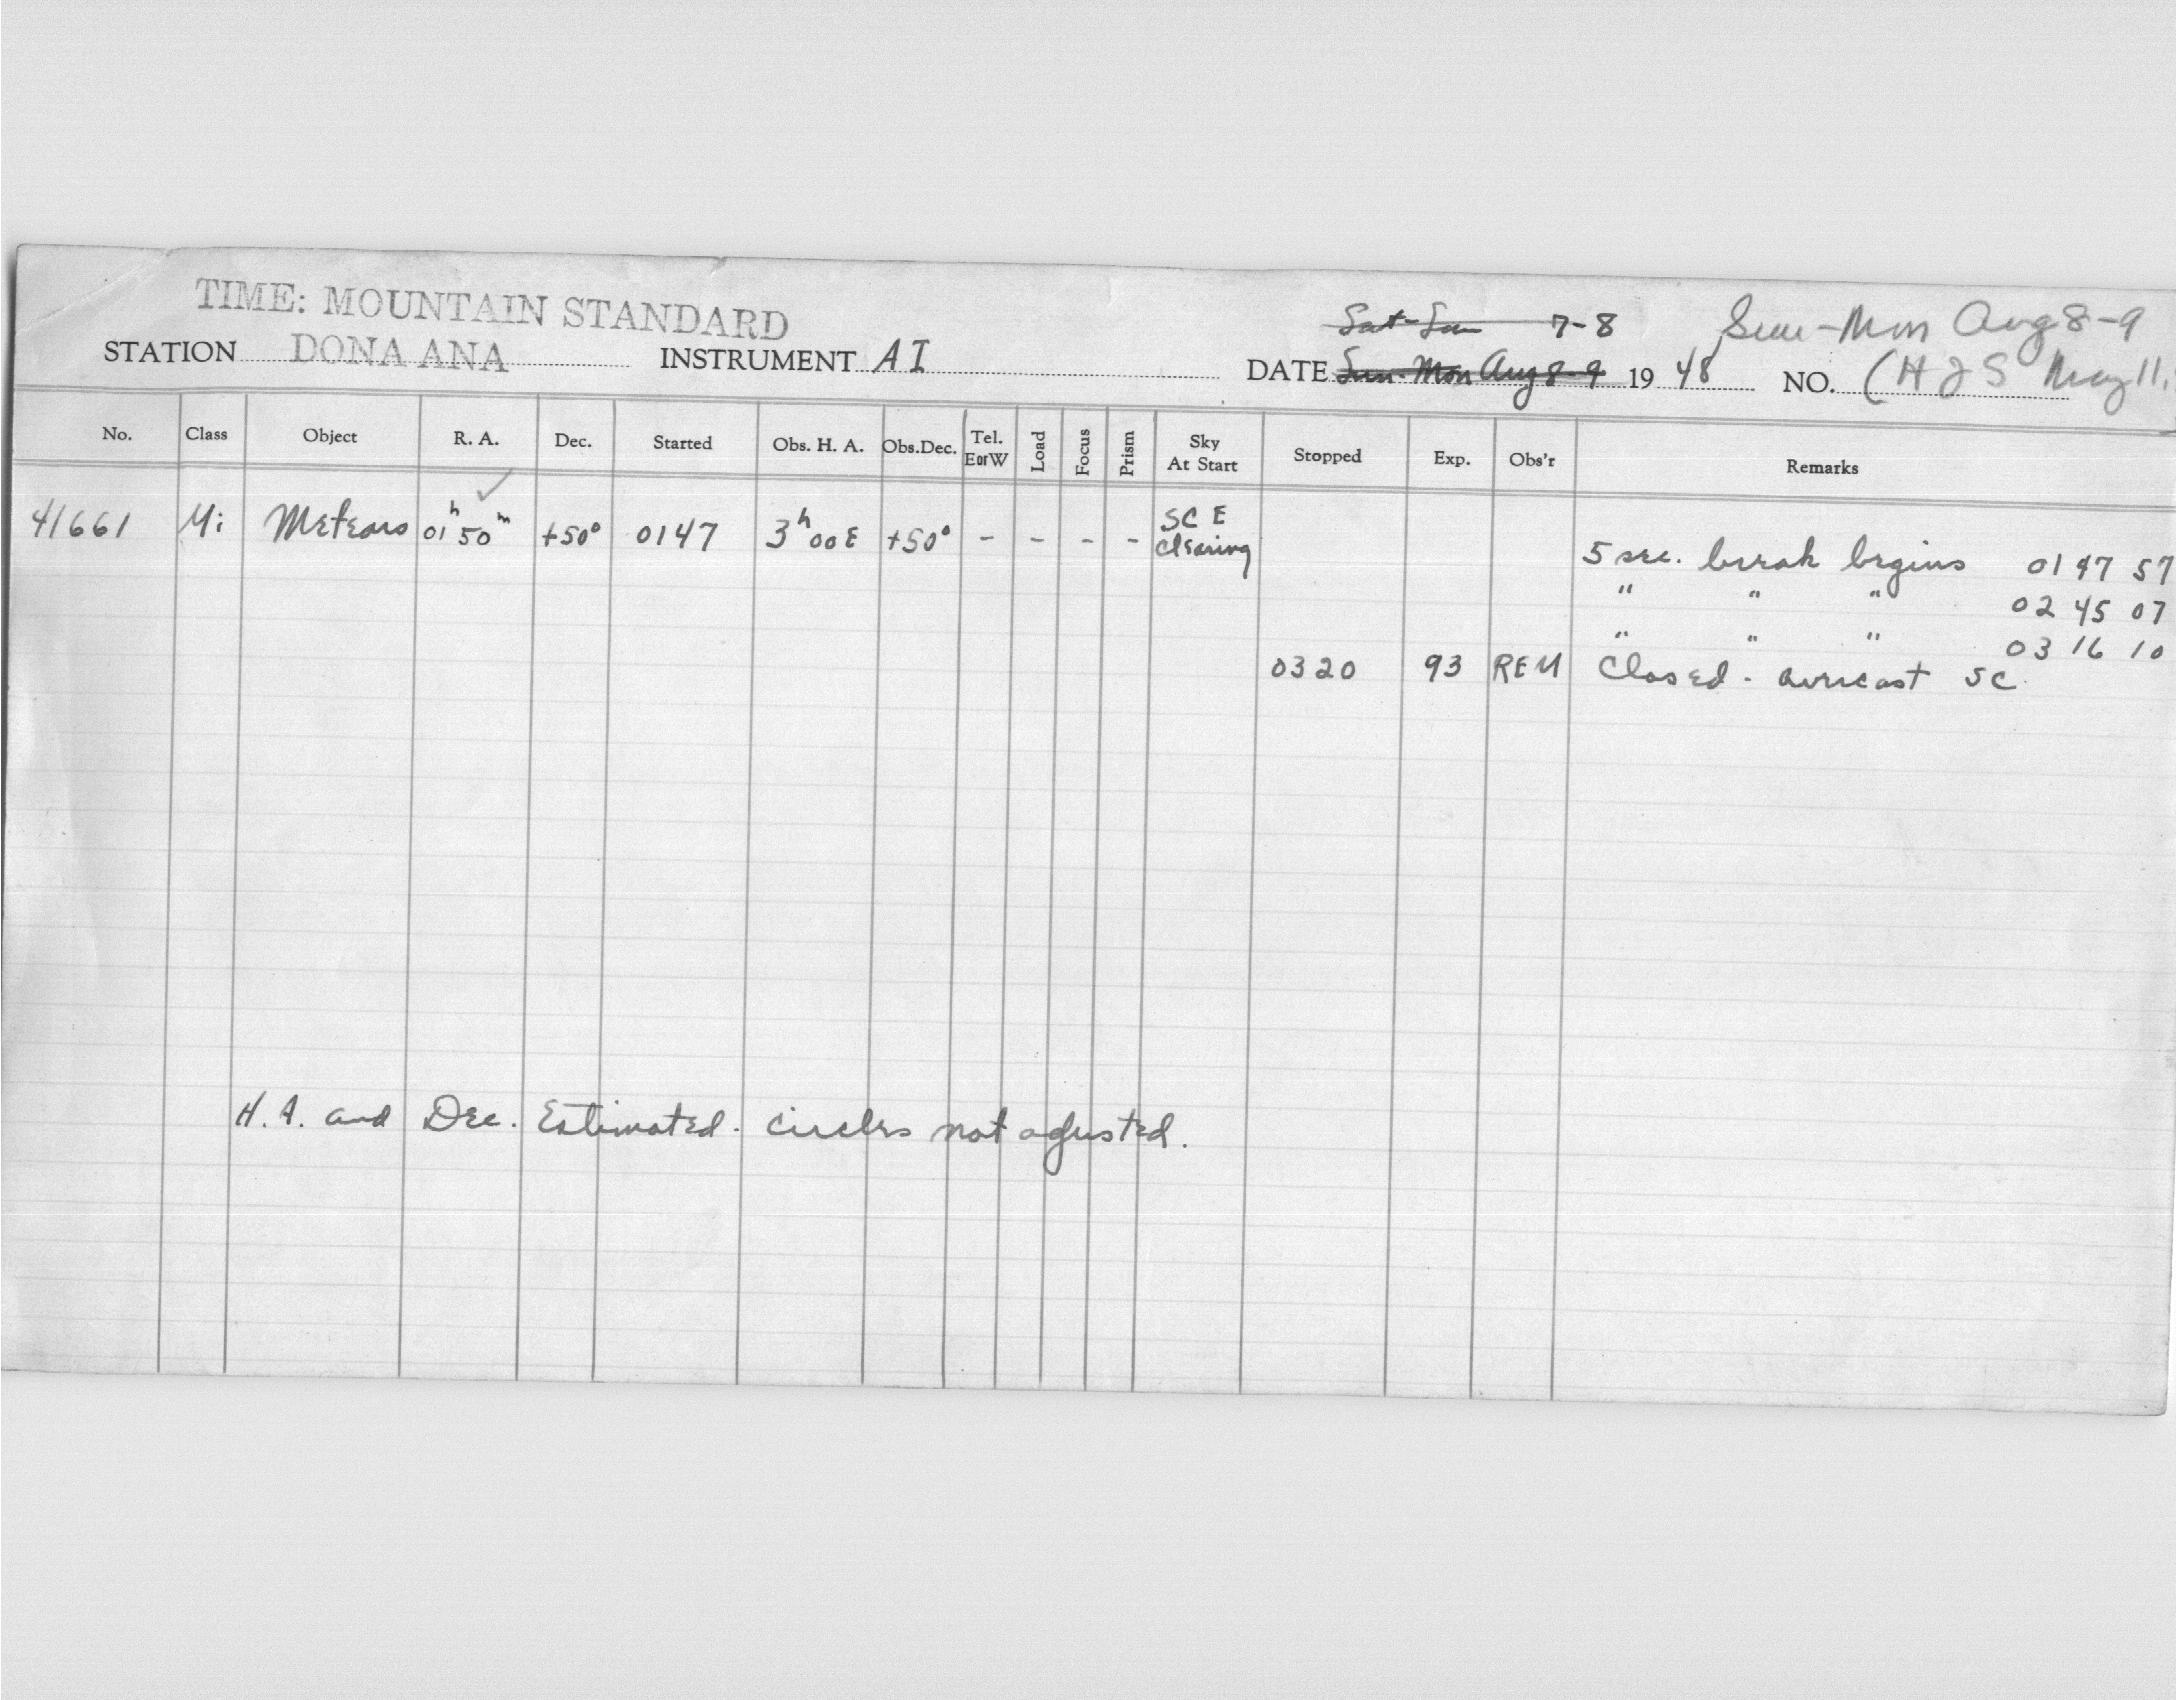 TIME: MOUNTAIN STANDARD
Sat-Sun 7-8 Sun-Mon Aug 8-9
STATION DONA ANA INSTRUMENT AI DATE Sun-Mon Aug 8-9 1948 NO. (HJS May 11,
No. Class Object R. A. Dec. Started Obs. H. A. Obs.Dec. Tel. E or W Load Focus Prism Sky At Start Stopped Exp. Obs'r Remarks
41661 Mi Meteors 01h 50m +50° 0147 3h 00 E +50° - - - - SC E clearing
5 sec. break begins 01 47 57
" " " 02 45 07
" " " 03 16 10
0320 93 REM Closed - overcast SC
H. A. and Dec. Estimated. circles not adjusted.